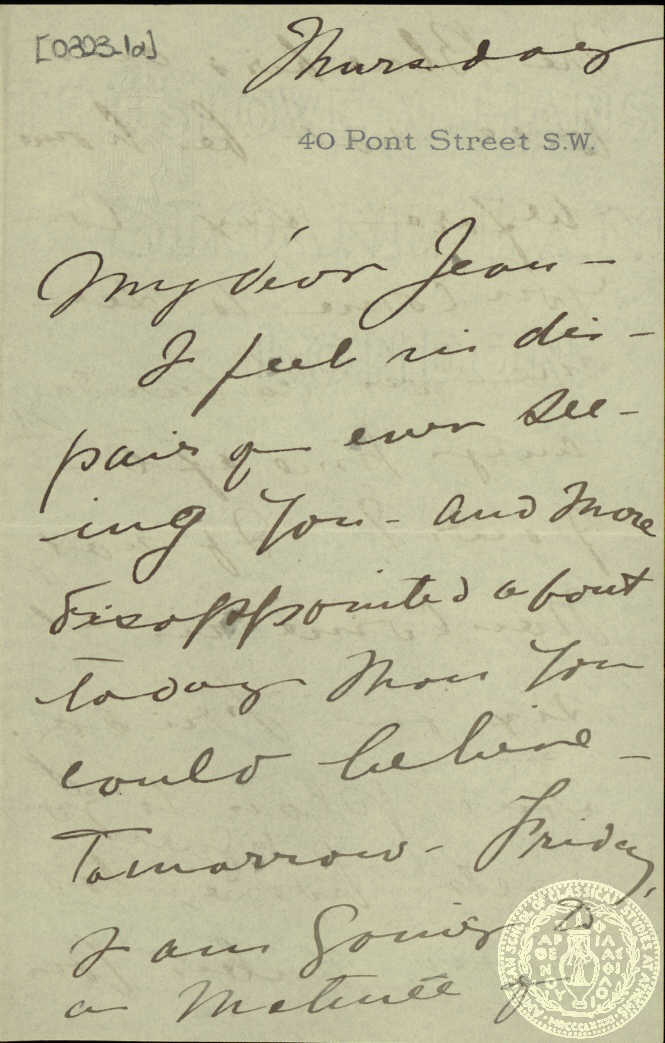 [0323-1a]
Thursday
40 Pont Street S.W.
My dear Jean -
I feel in dis -
pair of ever see -
ing you - and more
disappointed about
today than you
could believe -
Tomorrow - Friday,
I am going to
a Matinée of